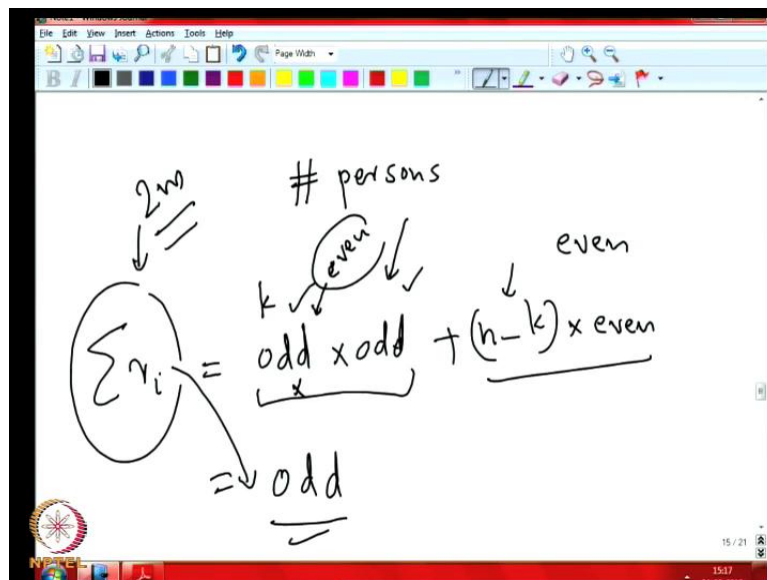 File Edit View Insert Actions Tools Help
Page Width
B I
2m
# persons
even
even
k
∑ r_i = odd x odd + (n-k) x even
x
= odd
15 / 21
NPTEL
15:17